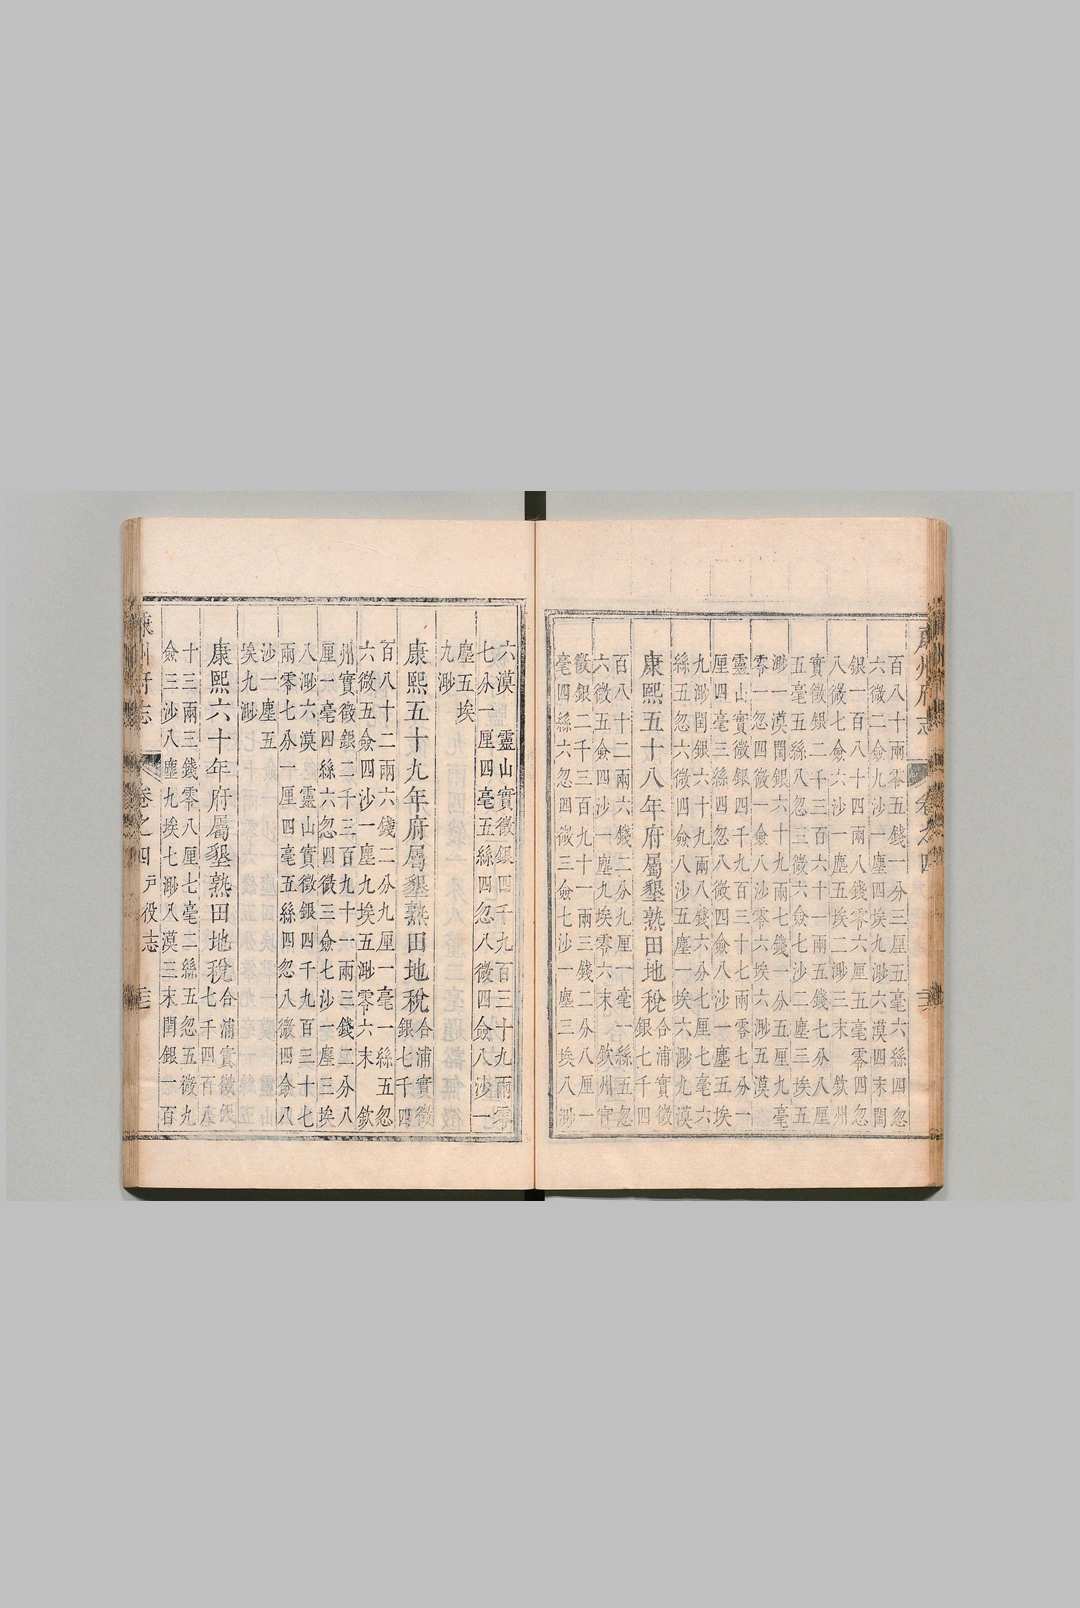 廉州府志 卷之四
百八十兩零五錢一分三厘五毫六絲四忽
六微二僉九沙一塵四埃九渺六漠四末閏
銀一百八十四兩八錢零六厘五毫零四忽
八微七僉六沙一塵五埃二渺三末 欽州
實徵銀二千三百六十一兩五錢七分八厘
五毫五絲八忽三微六僉七沙二塵三埃五
渺一漠閏銀六十九兩七錢一分五厘九毫
零一忽四微一僉八沙零六埃六渺五漠
靈山實徵銀四千九百三十七兩零七分一
厘四毫三絲四忽八微四僉八沙一塵五埃
九渺閏銀六十九兩八錢六分七厘七毫六
絲五忽六微四僉八沙五塵一埃六渺九漠
康熙五十八年府屬墾熟田地稅 合浦實徵
銀七千四
百八十二兩六錢二分九厘一毫一絲五忽
六微五僉四沙一塵九埃零六末 欽州實
徵銀二千三百九十一兩三錢二分八厘一
毫四絲六忽四微三僉七沙一塵三埃八渺
六漠 靈山實徵銀四千九百三十九兩零
七分一厘四毫五絲四忽八微四僉八沙一
塵五埃
九渺
康熙五十九年府屬墾熟田地稅 合浦實徵
銀七千四
百八十二兩六錢二分九厘一毫一絲五忽
六微五僉四沙一塵九埃五渺零六末 欽
州實徵銀二千三百九十一兩三錢二分八
厘一毫四絲六忽四微三僉七沙一塵三埃
八渺六漠 靈山實徵銀四千九百三十七
兩零七分一厘四毫五絲四忽八微四僉八
沙一塵五
埃九渺
康熙六十年府屬墾熟田地稅 合浦實徵銀
七千四百
十三兩三錢零八厘七毫二絲五忽五微九
僉三沙八塵九埃七渺八漠三末閏銀一百
廉州府志 卷之四 戶役志